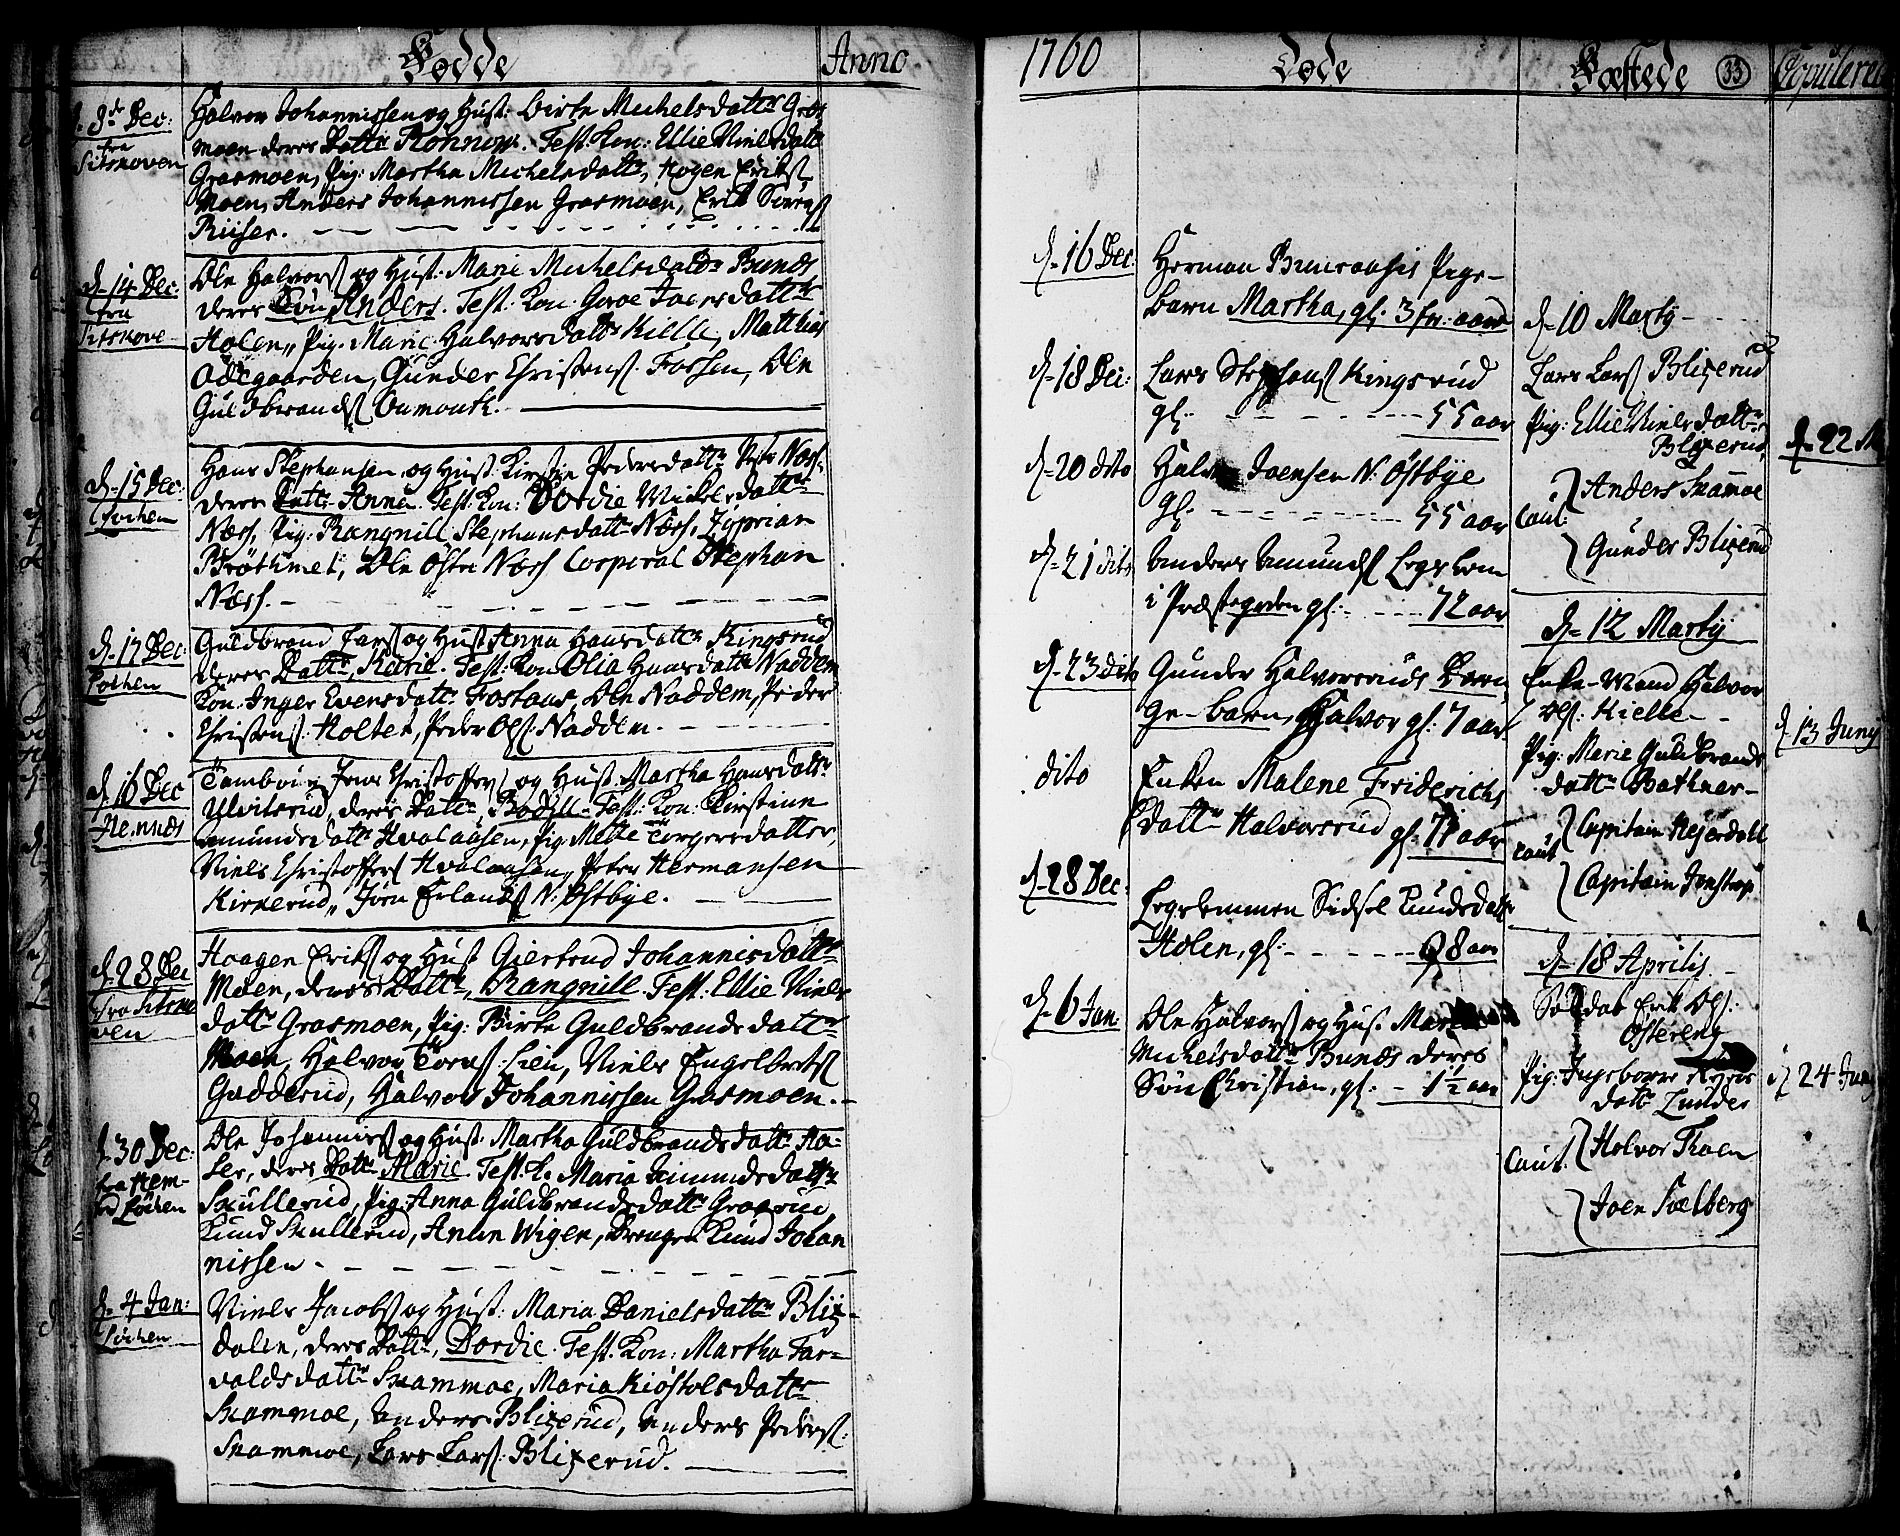 Fødde
Anno
d. 8de Dec:
fra
Sitskoven
Halvor Johannissen og Hust: Birte Michelsdattr Gras
moen deres Dattr Rønnow. Test. Kon: Ellie Nielsdattr
Grasmoen, Pig: Martha Michelsdattr, Hogen Eriks
Moen, Anders Johannissen Grasmoen, Erik Sørens
Riiser.
d. 14 Dec:
fra
Sitskove
Ole Halvors og Hust. Marie Michelsdattr Bunes
deres Søn Anders. Test: Kon: Goroe Joensdattr
Holen, Pig. Marie Halvorsdattr Kielle, Matthias
Ødegaarden, Gunder Christens. Fossen, Ole
Guldbrands
d. 15 Dec:
Løchen
Hans Stephansen og Hust: Kirstie Pedersdattr Næss
deres Dattr Anna. Test: Kon: Dordie Michelsdattr
Næss, Pig: Rangnill Stephansdattr Næss, Zyprian
Brøthmet, Ole Østre Næss Corporal Stephan
Næss.
d. 17 Dec:
Løchen
Guldbrand Lars og Hust Anna Hansdattr Kingsrud
deres Dattr Karie. Test: Kon Olia Hansdattr Naddem
Kon: Inger Evensdattr Fostaus, Ole Naddem, Peder
Christens: Holter, Peder Ols: Naddem.
d. 16 Dec
Hemnæs
Tambour Jens Christoffers og Hust: Martha Hansdattr
Ulvitsrud, deres Dattr Bodill Test: Kon: Kirstine
Amundsdattr Hvalaasen, Pig Mette Torgersdatter,
Niels Christoffers Hvalaasen, Peter Hermansen
Kirkerud, Jørn Erlands N: Østbye.
d. 28 Dec
fra Sitsko
ven
Haagen Eriks og Hust Giertrud Johannisdattr
Moen, deres Dattr, Rangnill Test: Ellie Niels
dattr Grasmoen, Pig: Birte Guldbrandsdattr
Moen, Halvor Lien, Niels Engelbrets
Gudderud, Halvor Johannissen Grasmoen.
d. 30 Dec:
fra Hem-
Løchen
Ole Johannis og Hust. Martha Guldbrandsdattr Aa-
ser, deres Dattr Marie Test: K. Maria Amundsdattr
Skullerud, Pig: Anna Guldbrandsdattr Graarud
Knud Skullerud, Anun Wiger, Drengen Knud Johan
nissen
d. 4 Jan:
Løchen
Niels Jacobs og Hust: Maria Danielsdattr Blix-
dalen, deres Dattr, Dordie. Test. Kon: Martha Tar-
valdsdattr Skammoe, Maria Kiøstolsdattr
Skammoe, Anders Blixerud, Anders Peders:
Skammoe, Lars Lars: Blixerud.
1760
Døde
Fæstede
33
Copulerede
d. 16 Dec:
Herman Bunraasis Pige-
barn Martha, gl: 3 fr: aar
d. 18 Dec:
Lars Stephans Kingsrud
gl: 55 aar
d. 20 dito
Halvor Joensen N. Østbye
gl: 55 aar
d. 21 dito
Anders Amunds Legslem
i Præstegrden gl: 72 aar
d. 23 dito
Gunder Halvorsruds Barn,
ge-barn, Halvor gl: 7 aar
dito
Enken Malene Friderichs
Dattr Halvorsrud gl: 71 aar
d. 28 Dec:
Legslemmen Sidsel Knudsdattr
Holen, gl: 98 aar
d. 6 Jan:
Ole Halvors og Hus. Marie
Michelsdattr Bunæs deres
Søn Christian, gl: 1½ aar
d. 10 Martj
Lars Lars Blixerud
Pig: Ellie Nielsdattr
Blixerud
Caut:
Anders Skammoe
Gunder Blixerud
d. 22
d. 12 Martij
Enke-Mand Halvor
Ols: Kielle
Pig: Marie Guldbrands
dattr Bathner
Caut
Capitain Hejerdall
Capitain Jenstrup
d. 13 Junij
d. 18 Aprilis
Soldat Erik Ols:
Østereng
Pig: Ingeborre
dattr Lundes
Caut.
Halvor Thoen
Joen Sælberg
d. 24 Junij